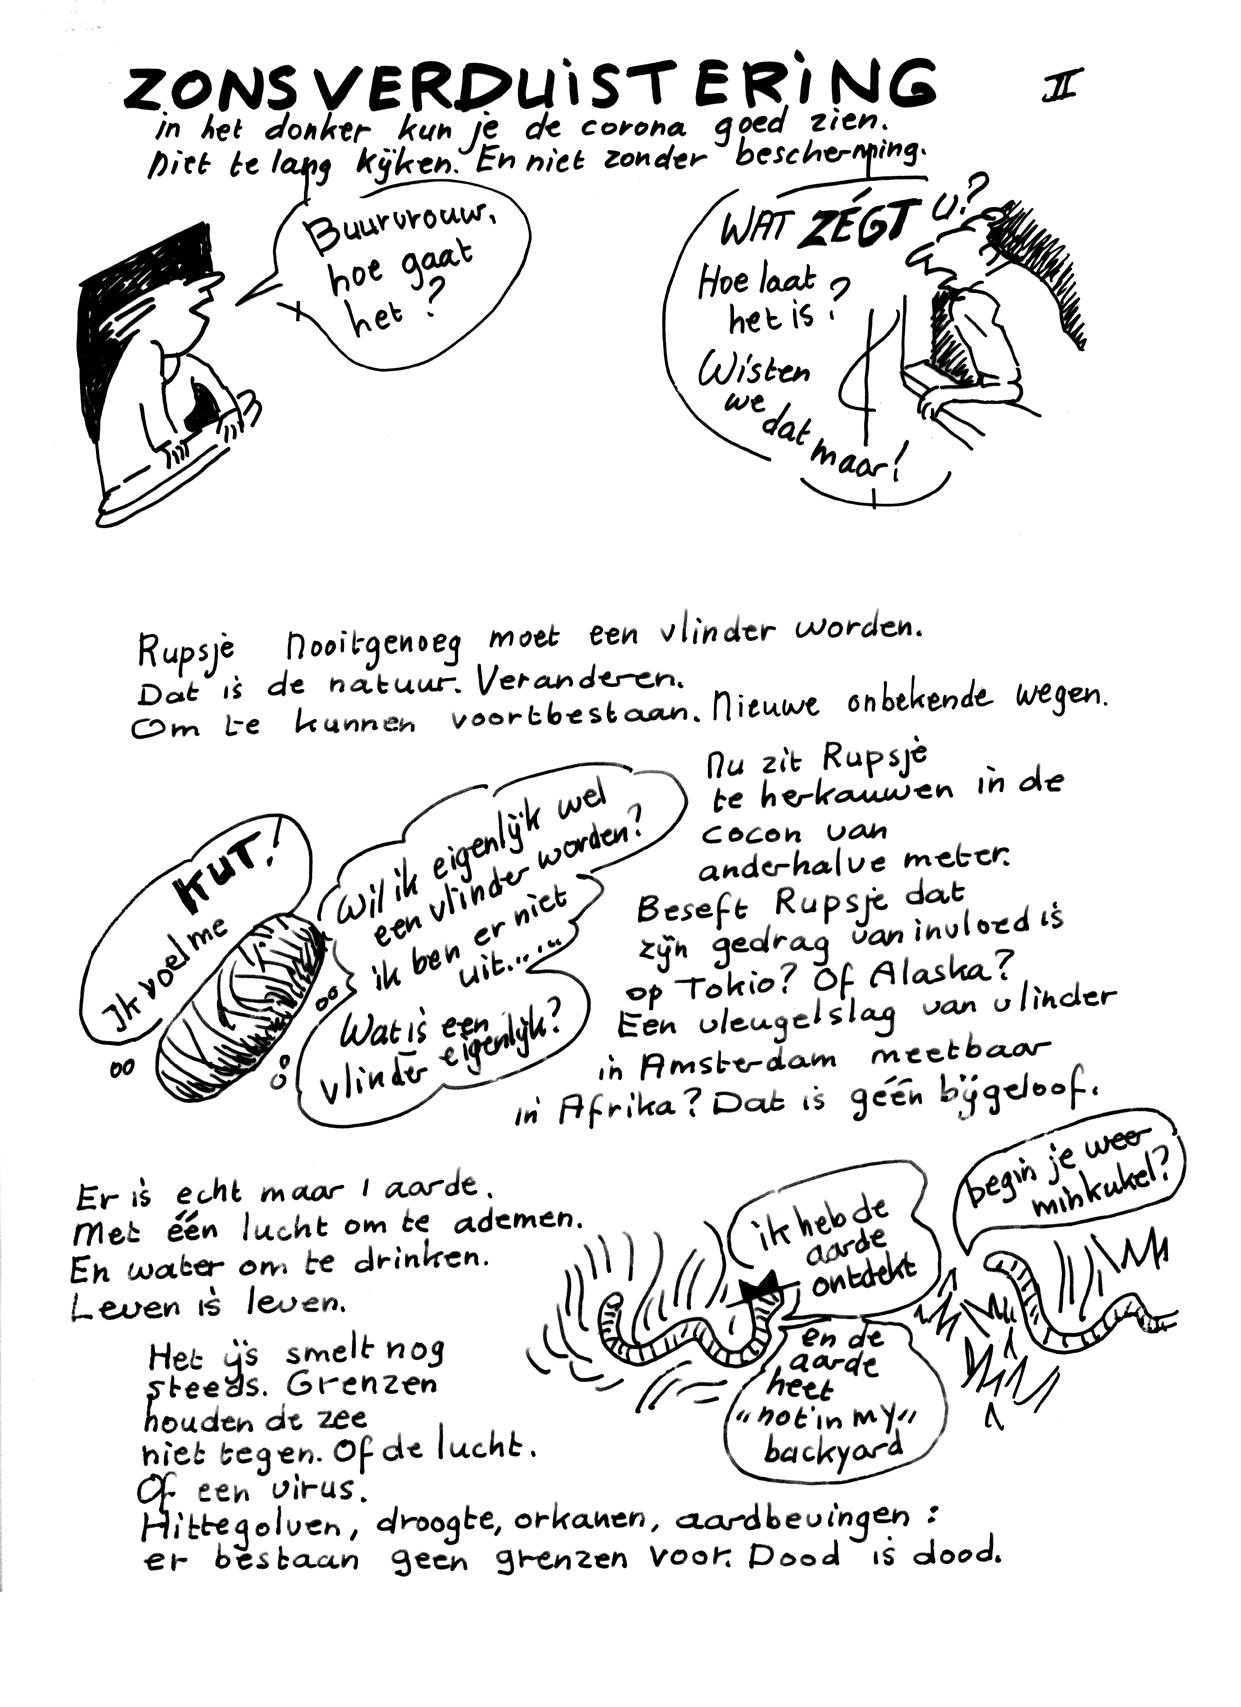 ZONSVERDUiSTERiNG II
in het donker kun je de corona goed zien.
niet te lang kijken. En niet zonder bescherming.
Buurvrouw,
hoe gaat
het?
WAT ZÉGT U?
Hoe laat
het is?
Wisten
we
dat
maar!
Rupsje Nooitgenoeg moet een vlinder worden.
Dat is de natuur. Veranderen.
Om te kunnen voortbestaan. Nieuwe onbekende wegen.
Nu zit Rupsje
te herkauwen in de
cocon van
anderhalve meter.
Ik voel me
KUT!
Wil ik eigenlijk wel
een vlinder worden?
ik ben er niet
uit.....
Wat is een
vlinder eigenlijk?
Beseft Rupsje dat
zijn gedrag van invloed is
op Tokio? Of Alaska?
Een vleugelslag van vlinder
in Amsterdam meetbaar
in Afrika? Dat is géén bijgeloof.
Er is echt maar 1 aarde.
Met één lucht om te ademen.
En water om te drinken.
Leven is leven.
ik heb de
aarde
ontdekt
en de
aarde
heet
"not in my"
backyard
begin je weer
minkukel?
Het ijs smelt nog
steeds. Grenzen
houden de zee
niet tegen. Of de lucht.
Of een virus.
Hittegolven, droogte, orkanen, aardbevingen:
er bestaan geen grenzen voor. Dood is dood.